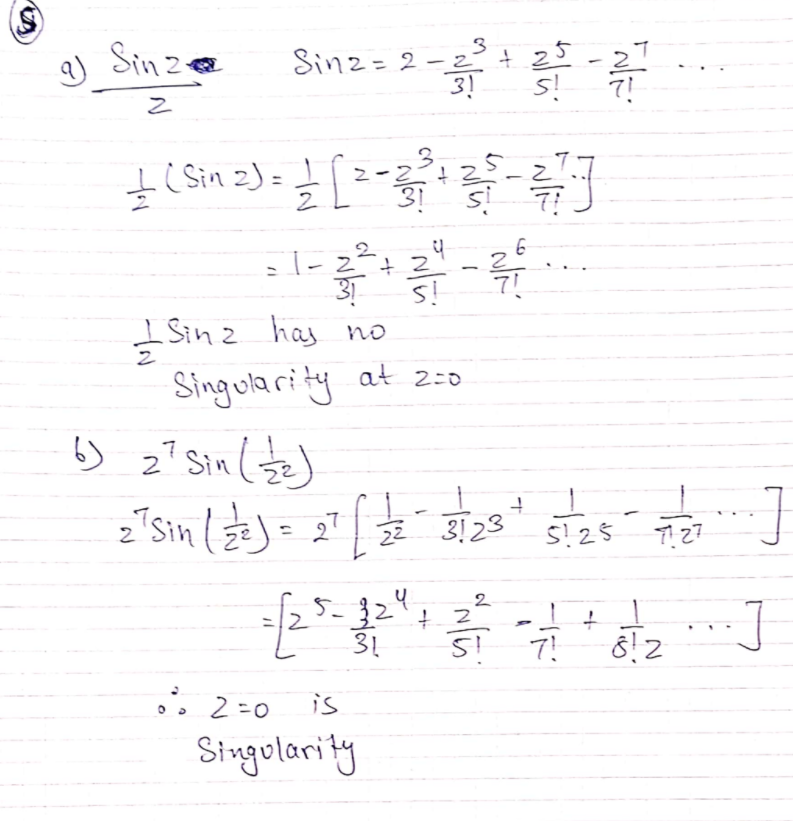 (5)
a) Sin z / z    Sin z = z - z³/3! + z⁵/5! - z⁷/7! ...
1/z (Sin z) = 1/z [z - z³/3! + z⁵/5! - z⁷/7! ..]
= 1 - z²/3! + z⁴/5! - z⁶/7! ...
1/z Sin z has no
Singularity at z=0
b) z⁷ Sin(1/z²)
z⁷ Sin(1/z²) = z⁷ [1/z² - 1/3!z³ + 1/5!z⁵ - 1/7!z⁷ ...]
= [z⁵ - z⁴/3! + z²/5! - 1/7! + 1/8!z ...]
∴ z=0 is
Singularity